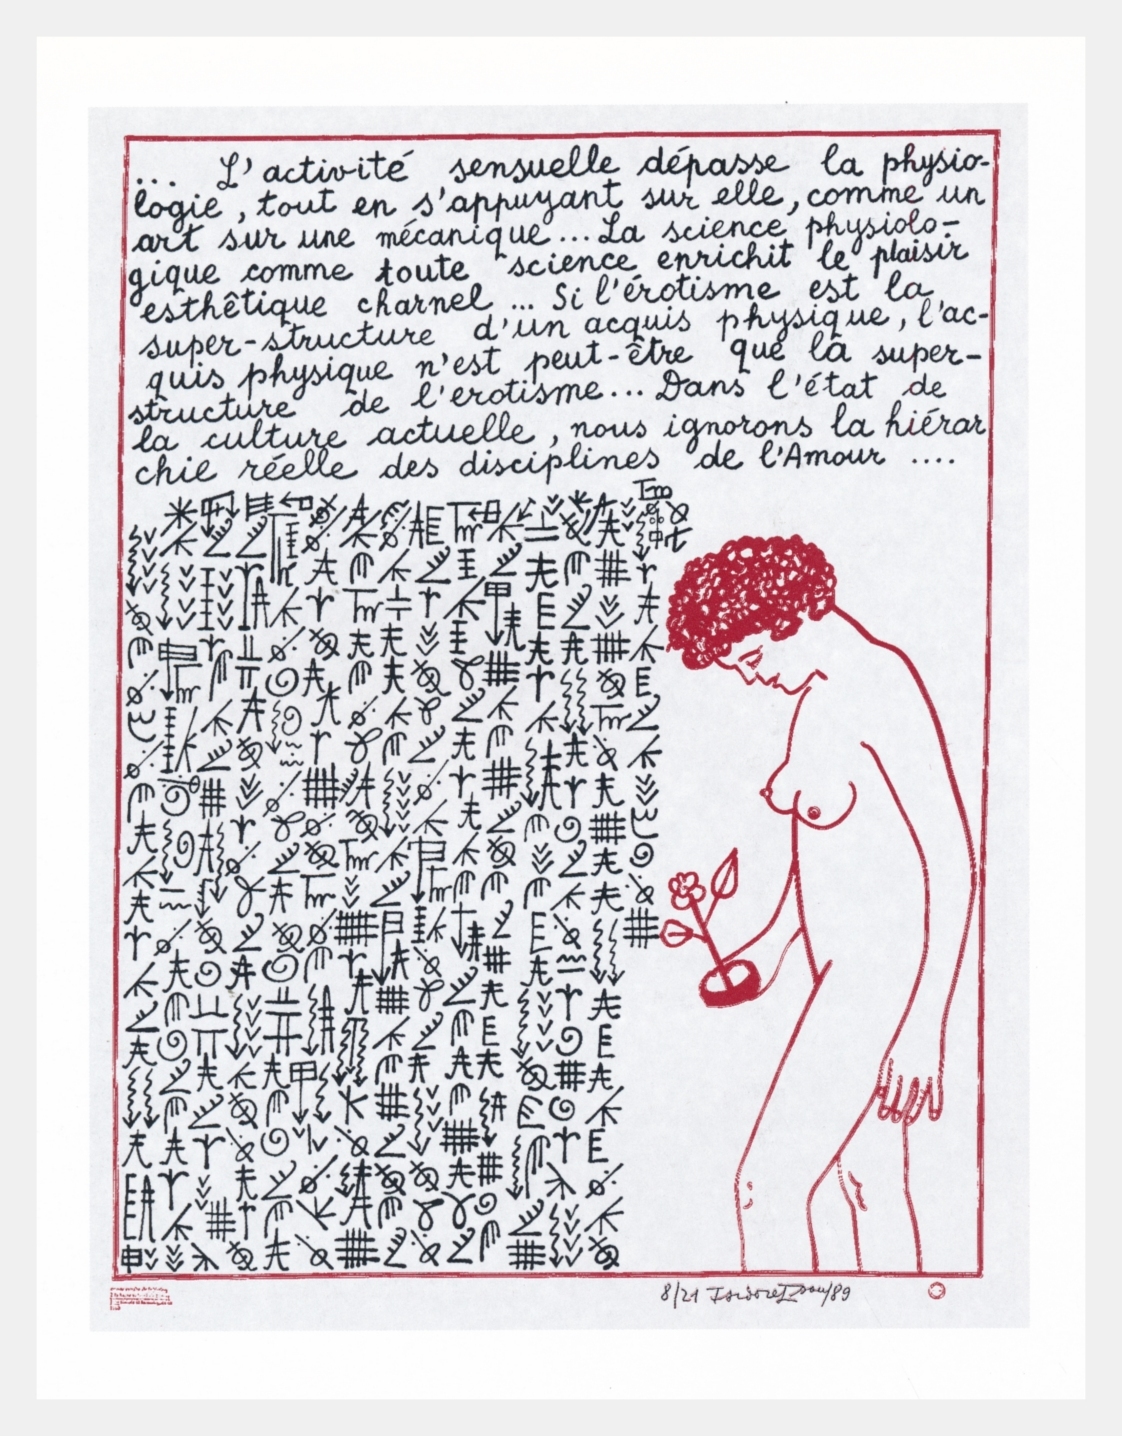 ... L'activité sensuelle dépasse la physio-
logie, tout en s'appuyant sur elle, comme un
art sur une mécanique... La science physiolo-
gique comme toute science enrichit le plaisir
esthêtique charnel ... Si l'érotisme est la
super-structure d'un acquis physique, l'ac-
quis physique n'est peut-être que la super-
structure de l'erotisme... Dans l'état de
la culture actuelle, nous ignorons la hiérar
chie réelle des disciplines de l'Amour ....
8/21 Isidore Isou/89